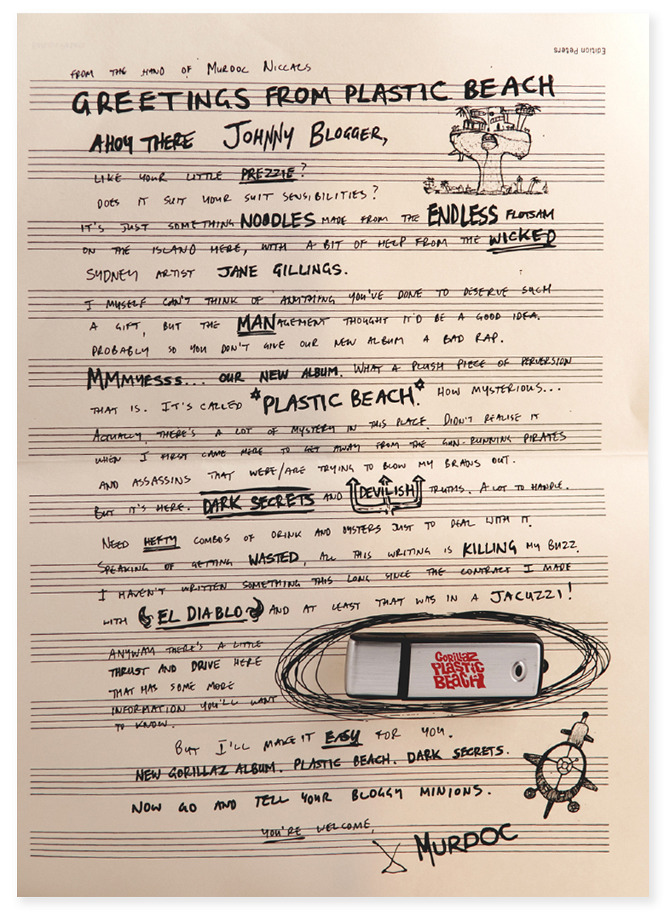 Edition Peters
FROM THE HAND OF MURDOC NICCALS
GREETINGS FROM PLASTIC BEACH
AHOY THERE JOHNNY BLOGGER,
LIKE YOUR LITTLE PREZZIE?
DOES IT SUIT YOUR SUIT SENSIBILITIES?
IT'S JUST SOMETHING NOODLES MADE FROM THE ENDLESS FLOTSAM
ON THE ISLAND HERE, WITH A BIT OF HELP FROM THE WICKED
SYDNEY ARTIST JANE GILLINGS.
I MYSELF CAN'T THINK OF ANYTHING YOU'VE DONE TO DESERVE SUCH
A GIFT, BUT THE MANAGEMENT THOUGHT IT'D BE A GOOD IDEA.
PROBABLY SO YOU DON'T GIVE OUR NEW ALBUM A BAD RAP.
MMMYESSS... OUR NEW ALBUM. WHAT A PLUSH PIECE OF PERVERSION
THAT IS. IT'S CALLED *PLASTIC BEACH.* HOW MYSTERIOUS...
ACTUALLY, THERE'S A LOT OF MYSTERY IN THIS PLACE. DIDN'T REALISE IT
WHEN I FIRST CAME HERE TO GET AWAY FROM THE GUN-RUNNING PIRATES
AND ASSASSINS THAT WERE/ARE TRYING TO BLOW MY BRAINS OUT.
BUT IT'S HERE. DARK SECRETS AND DEVILISH TRUTHS. A LOT TO HANDLE.
NEED HEFTY COMBOS OF DRINK AND OYSTERS JUST TO DEAL WITH IT.
SPEAKING OF GETTING WASTED, ALL THIS WRITING IS KILLING MY BUZZ.
I HAVEN'T WRITTEN SOMETHING THIS LONG SINCE THE CONTRACT I MADE
WITH EL DIABLO AND AT LEAST THAT WAS IN A JACUZZI!
ANYWAY THERE'S A LITTLE
THRUST AND DRIVE HERE
THAT HAS SOME MORE
INFORMATION YOU'LL WANT
TO KNOW.
GORILLAZ
PLASTIC
BEACH
BUT I'LL MAKE IT EASY FOR YOU.
NEW GORILLAZ ALBUM. PLASTIC BEACH. DARK SECRETS.
NOW GO AND TELL YOUR BLOGGY MINIONS.
YOU'RE WELCOME,
X MURDOC